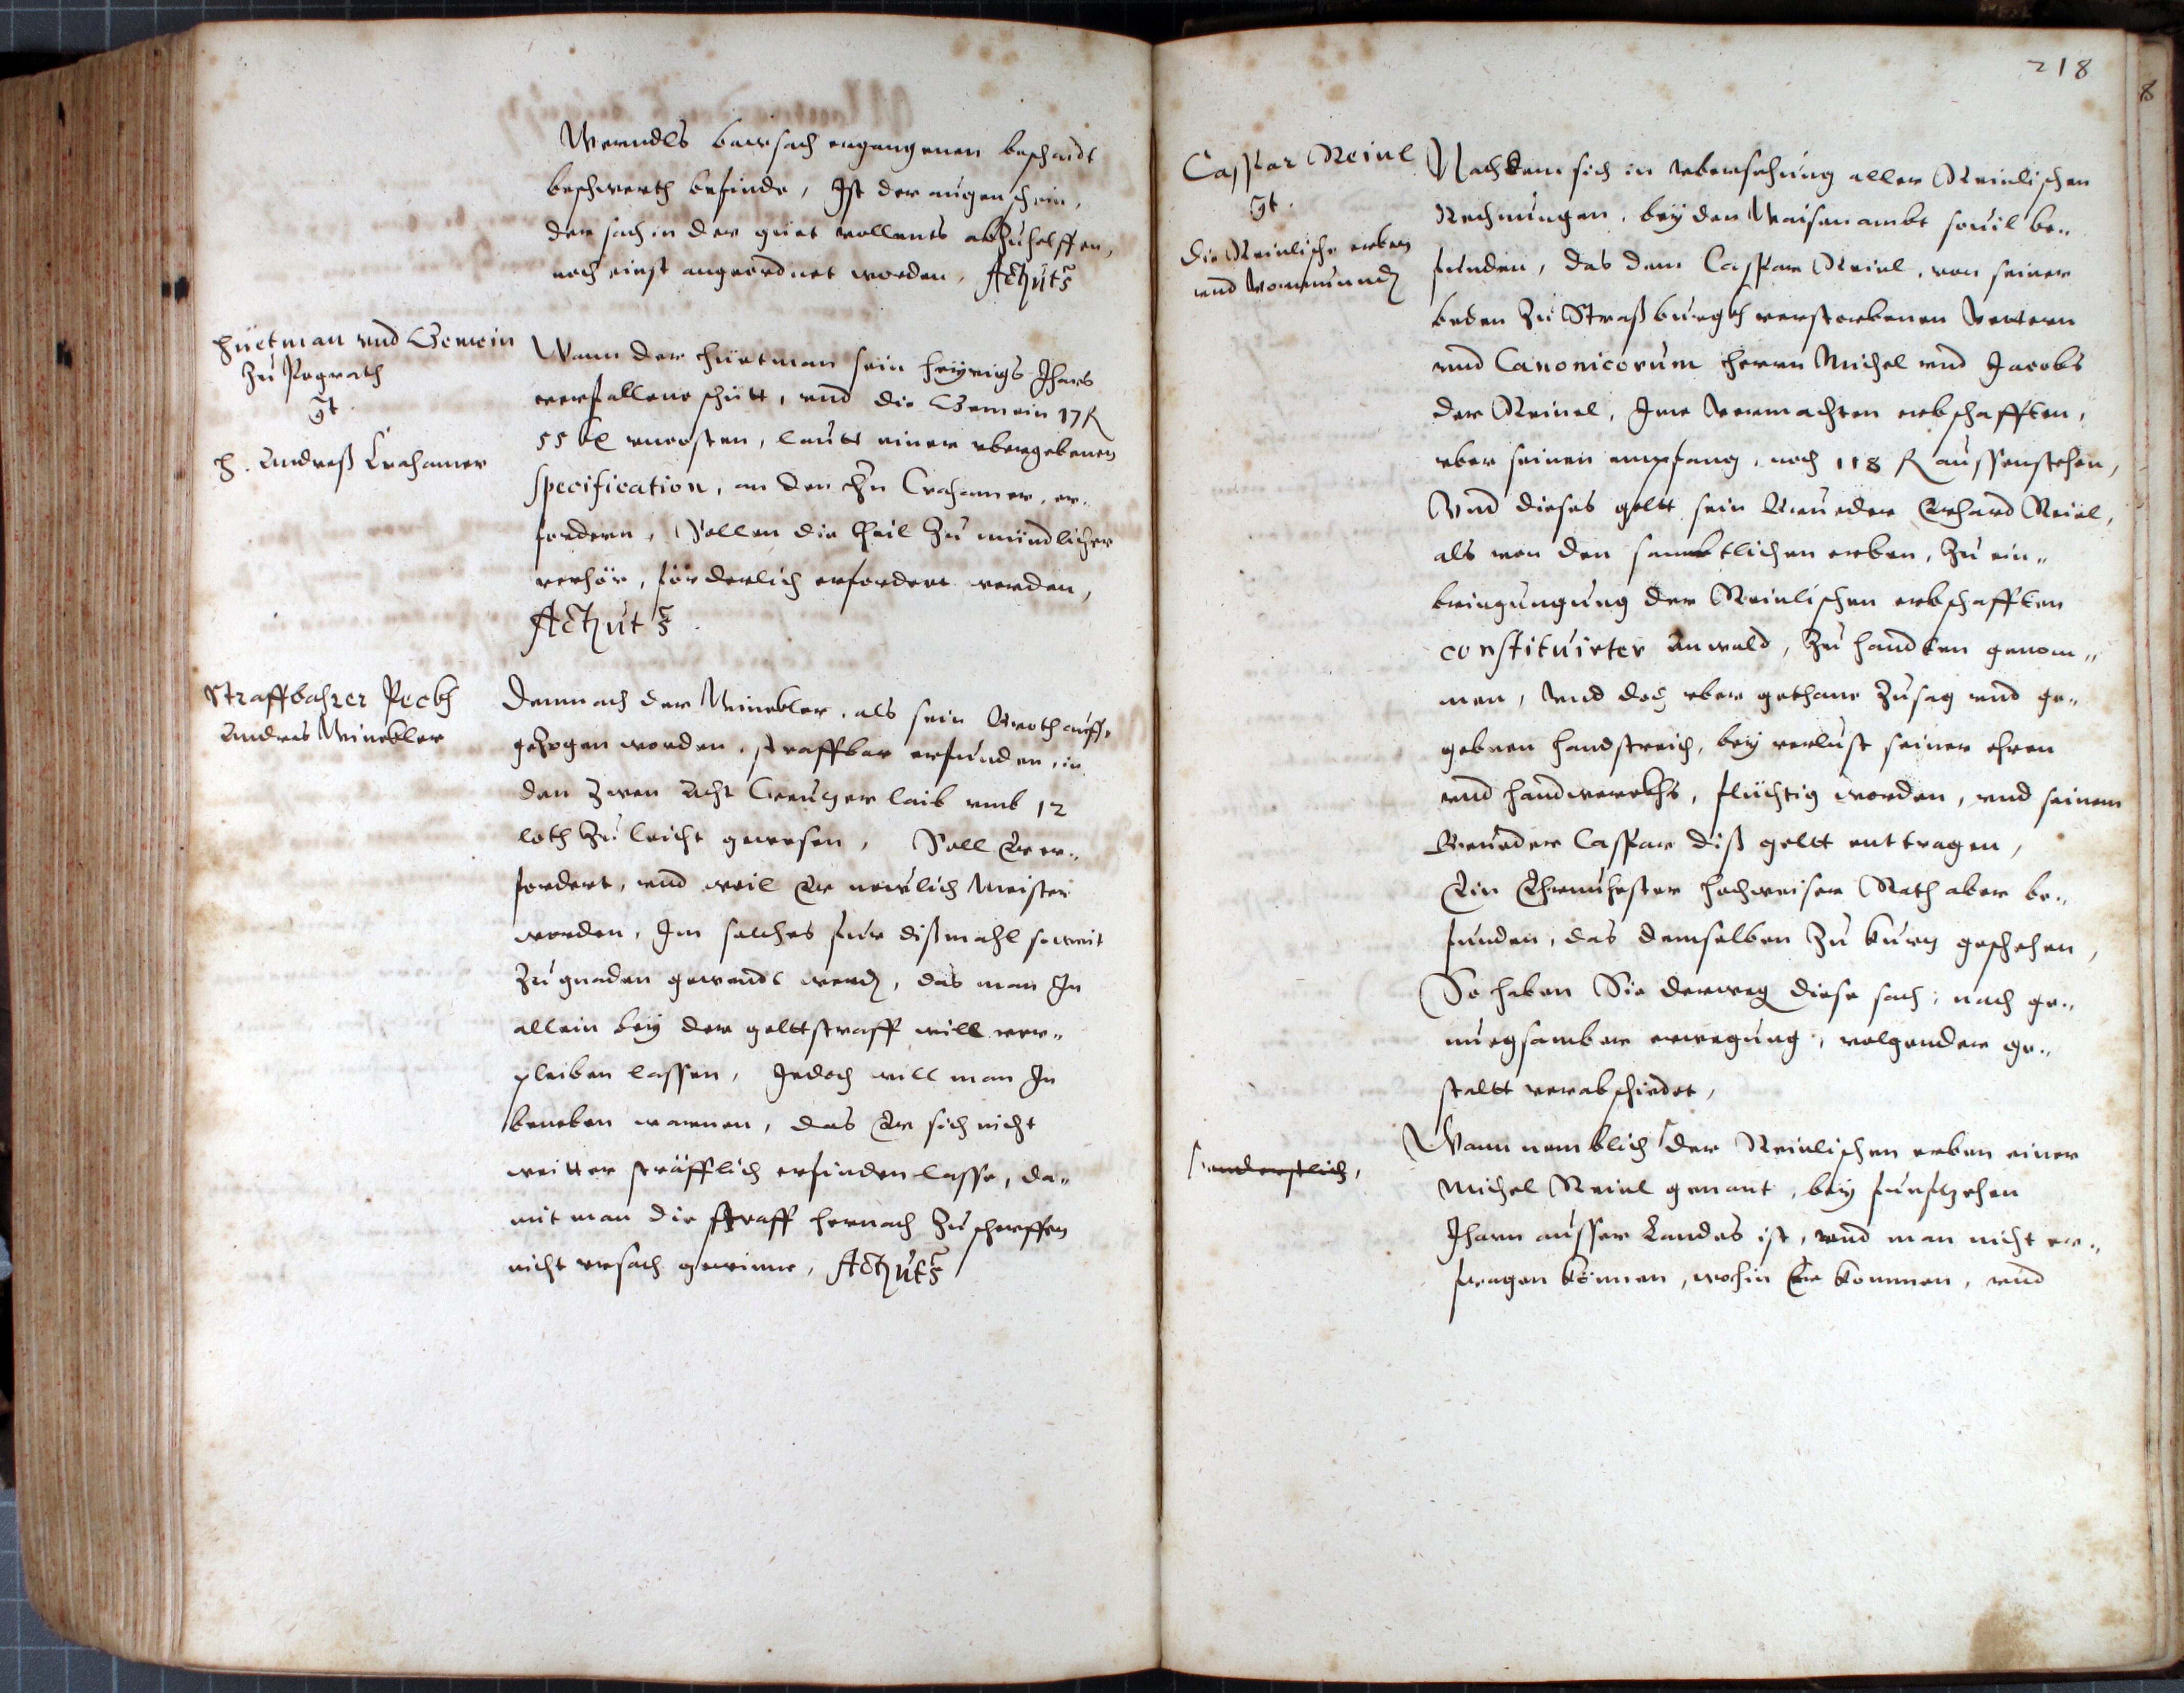 Werndls bawsach ergangenen beschaidt
beschwerth befinde, Ist der augenschein,
der sach in der güet vollents abzuhelffen,
noch einst angeordnet worden, Act ut s
Hüetman vnd Gemein
zu Pograth
gt.
H. Andreß Crahamer
Wann der Hüetman sein heyrigs Jhars
verfallene schütt, vnd die Gemein 17 R
55 kr vncosten, lautt einer vbergebenen
specification, an den Hn Crahamer, er„
fordern, Sollen die theil zu mündlicher
verhör, förderlich erfordert werden,
Act ut s.
Straffbahrer Peckh
Andres Winckler
Demnach der Winckler, als sein Broth auff„
gezogen worden, straffbar erfunden, in
den zwen Acht Creuzer laib vmb 12
loth zu leicht gewesen, Soll Er er„
fordert, vnd weil Er newlich Meister
worden, Im solches fur dißmahl soweit
zu gnaden gewendt werdn, das man In
allein bey der geltstraff will ver„
pleiben lassen, Jedoch will man In
beneben warnen, das Er sich nicht
weitter sträfflich erfinden lasse, da„
mit man die straff hernach zu scherffen
nicht vrsach gewinne, Act ut s
218
Caspar Reinl
gt.
die Reinlische erben
vnd Vormundn
Nachdem sich in vbersehung aller Reinlischen
Rechnungen, bey den Waisenambt souil be„
funden, das dem Caspar Reinl, von seiner
beden zu Straßburgkh verstorbenen Vettern
vnd Canonicorum Herrn Michel vnd Jacobs
der Reinel, Ime vermachten erbschafften,
vber seinen empfang, noch 118 R aussenstehen,
Vnd dieses geltt sein Brueder Erhard Reinl,
als von den sambtlichen erben, zu ein„
bringungung der Reinlischen erbschafften
constituirter Anwald, zu handten genom„
men, Vnd doch vber gethane zusag vnd ge„
gebnen handstreich, bey verlust seiner ehren
vnd handwerckhs, flüchtig worden, vnd seinem
Brueder Caspar diß geltt enttragen,
Ein Ehrnuhester hochweiser Rath aber be„
funden, das demselben zu kurz geschehen,
So haben Sie derweg diese sach, nach ge„
nuegsamber erwegung, volgender ge„
staltt verabschiedet,
Wann nemblich der Reinlischen erben einer
Michel Reinl genant, bey funfzehen
Jharn ausser Landes ist, vnd man nicht er„
fragen können, wohin Er kommen, vnd